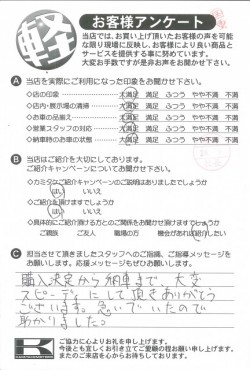 軽
お客様アンケート
当店では、お買い上げ頂いたお客様の声を可能
な限り現場に反映し、お客様により良い商品と
サービスを提供する事に努めています。
大変お手数ですが是非お声をお聞かせ下さい。
A 当店を実際にご利用になった印象をお聞かせ下さい。
◇店の印象 大満足 満足 ふつう やや不満 不満
◇店内・展示場の清掃 大満足 満足 ふつう やや不満 不満
◇お車の品揃え 大満足 満足 ふつう やや不満 不満
◇営業スタッフの対応 大満足 満足 ふつう やや不満 不満
◇納車時のお車の状態 大満足 満足 ふつう やや不満 不満
B 当店はご紹介を大切にしております。
ご紹介キャンペーンについてお聞かせ下さい。
◇カミタのご紹介キャンペーンのご説明はありましたでしょうか
はい いいえ
◇ご紹介を頂けますでしょうか
はい いいえ
◇具体的にご紹介頂ける方とのご関係をお聞かせ頂けますでしょうか
ご親戚 ご友人 職場の方 機会があれば紹介したい
C 担当させて頂きましたスタッフへのご指摘、ご指導メッセージを
お願いします。応援メッセージもぜひお願いします。
購入決定から納車まで、大変
スピーディにして頂きありがとう
ございます。急いでいたので
助かりました。
K
ご協力に心よりお礼を申し上げます。
今後とも宜しくお引き立てご愛顧の程お願い申し上げます。
またのご来店を心からお待ちしております。